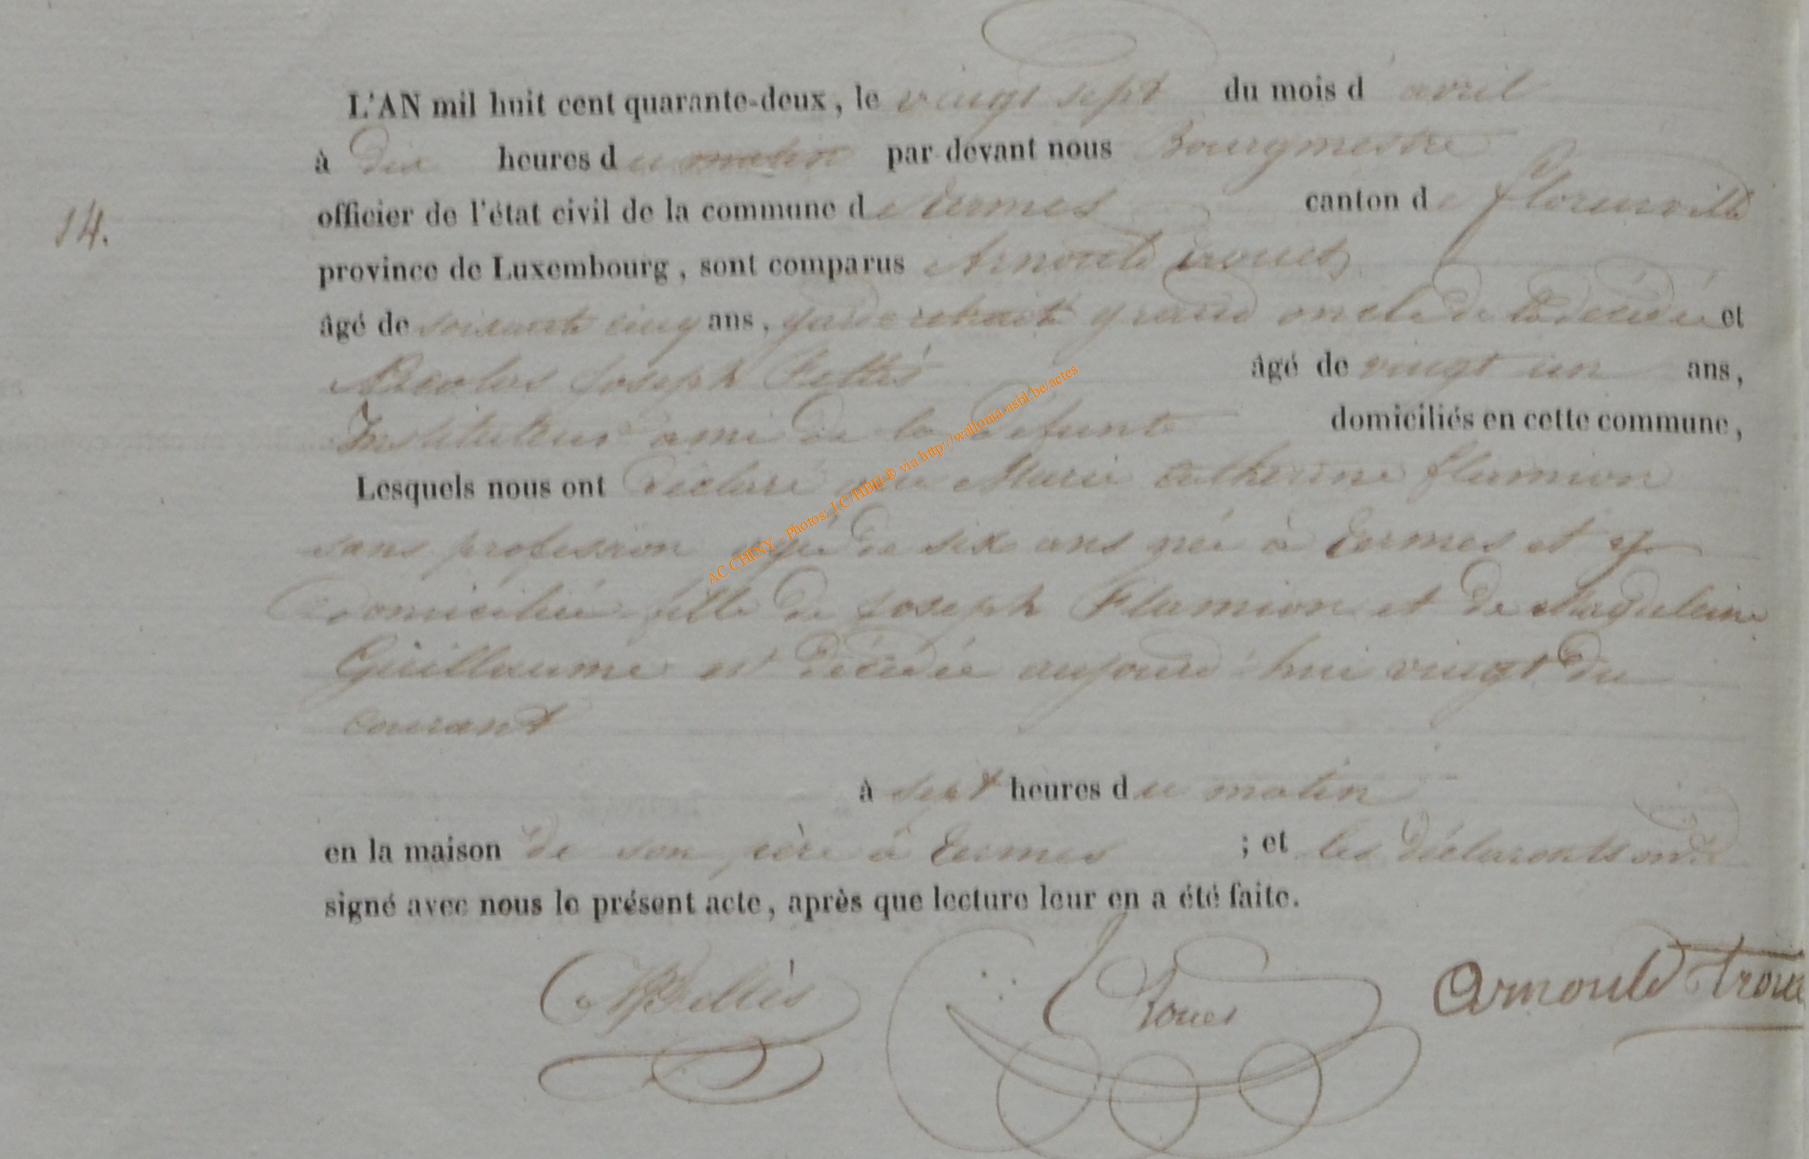 L'AN mil huit cent quarante-deux, le vingt sept du mois d'avril
à dix heures du matin par devant nous Bourgmestre
officier de l'état civil de la commune de canton de florenville
14.
province de Luxembourg, sont comparus Arnould
âgé de soixante cinq ans, garde retraité grand oncle de la décédée et
Nicolas Joseph âgé de vingt un ans,
Instituteur ami de la défunte domiciliés en cette commune,
Lesquels nous ont déclaré que Marie catherine flamion
AC CHINY - Photos: via http://wallonia-asbl.be/actes
sans profession agé de six ans née à et y
domiciliée fille de joseph Flamion et de Magdeleine
Guillaume est décédée aujourd'hui vingt du
courant
à sept heures du matin
en la maison de son père à ; et les déclarants ont
signé avec nous le présent acte, après que lecture leur en a été faite.
Arnould